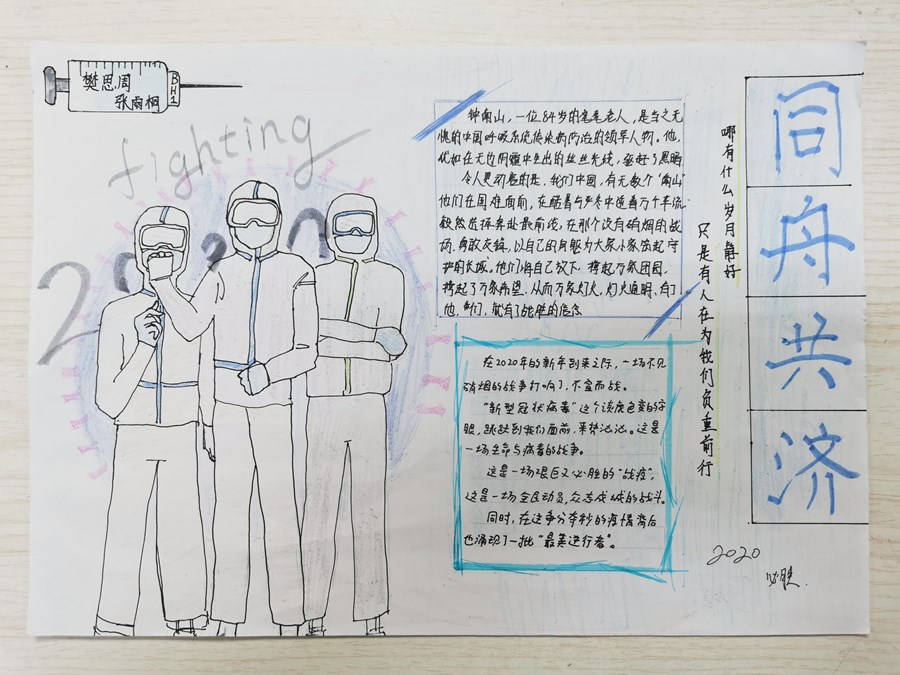 樊思周
张雨桐
BH1
fighting
2020
钟南山,一位84岁的耄耋老人,是当之无
愧的中国呼吸系统传染病防治的领军人物。他,
优如在无边阴霾中生出的丝丝光线,驱赶了黑暗
令人更动容的是,我们中国,有无数个“南山”
他们在国难面前,在腊月严冬中迎着万千寒流
毅然选择奔赴最前线,在那个没有硝烟的战
场,勇敢反转,以自己的身躯为大家小家筑起守
护的长城。他们将自己放下,撑起万家团圆,
撑起了万家希望,从而万家灯火,灯火通明,有了
他,他们,就有了战胜的信念
在2020年的新年到来之际,一场不见
硝烟的战争打响了,不宣而战。
“新型冠状病毒”这个谈虎色变的字
眼,跳跃到我们面前,来势汹汹。这是
一场生命与病毒的战争。
这是一场艰巨又必胜的“战疫”,
这是一场全民动员,众志成城的战斗。
同时,在这争分夺秒的疫情背后
也涌现了一批“最美逆行者”。
哪有什么岁月静好
只是有人在为我们负重前行
同舟共济
2020
必胜.